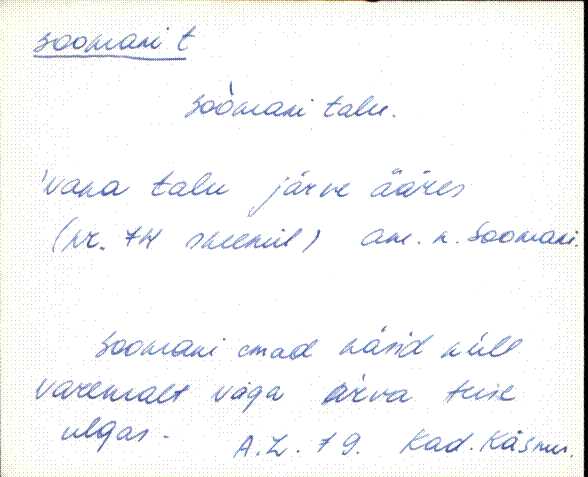 Soomani t
Soòmani talu.
'vana talu järve ääres
(nr. 74 skeemil) am. n. Soomani.
Soomani omad käisid küll
varemalt väga
ulgas.
A.L. 79. Kad. Käsmu.